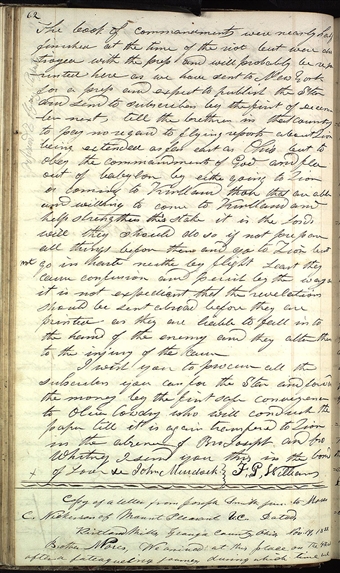 62
The book of commandments were nearly half
finished at the time of the riot but were des
troyed with the press and will probably be rep
rinted here as we have sent to New York
for a press and expect to publish the Star
and send to subscribers by the first of decem
ber next, tell the brethren in that country
to pay no regard to flying reports about Zion
being extended as far east as Ohio but to
obey the commandments of God and flee
out of babylon by going to Zion
or coming to Kirtland that are able
and willing to come to Kirtland and
help strengthen this stake it is the lords
will they should do so if not prepare
all things before them and go to Zion but
not go in haste neither by flight least they
cause confusion and peril by the way
it is not expediant that the revelations
should be sent abroad before they are
printed as they are liable to fall in to
the hand of the enemy and they alter them
to the injury of the cause
I wish you to procure all the
subscribers you can for the Star and send
the money by the first safe conveyance
to Oliver Cowdry who will conduct the
paper till it is again transfered to Zion
in the absence of Bro Joseph and bro
Whitney I send you this in the bonds
of Love &c John Murdock F. G. Williams
Copy of a letter from Joseph Smith junr to Moses
C. Nickerson of Mount Pleasant U.C. Dated
Kirtland Mills Geauga County Ohio Nov 19, 1833
Brother Moses, We arrived at this place on the
after a fatiegueing journey during which time we